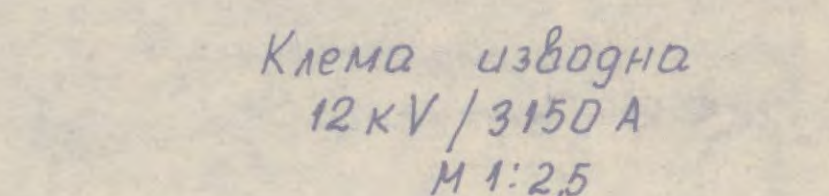 Клема изводна
12 кV / 3150 А
М 1:2,5